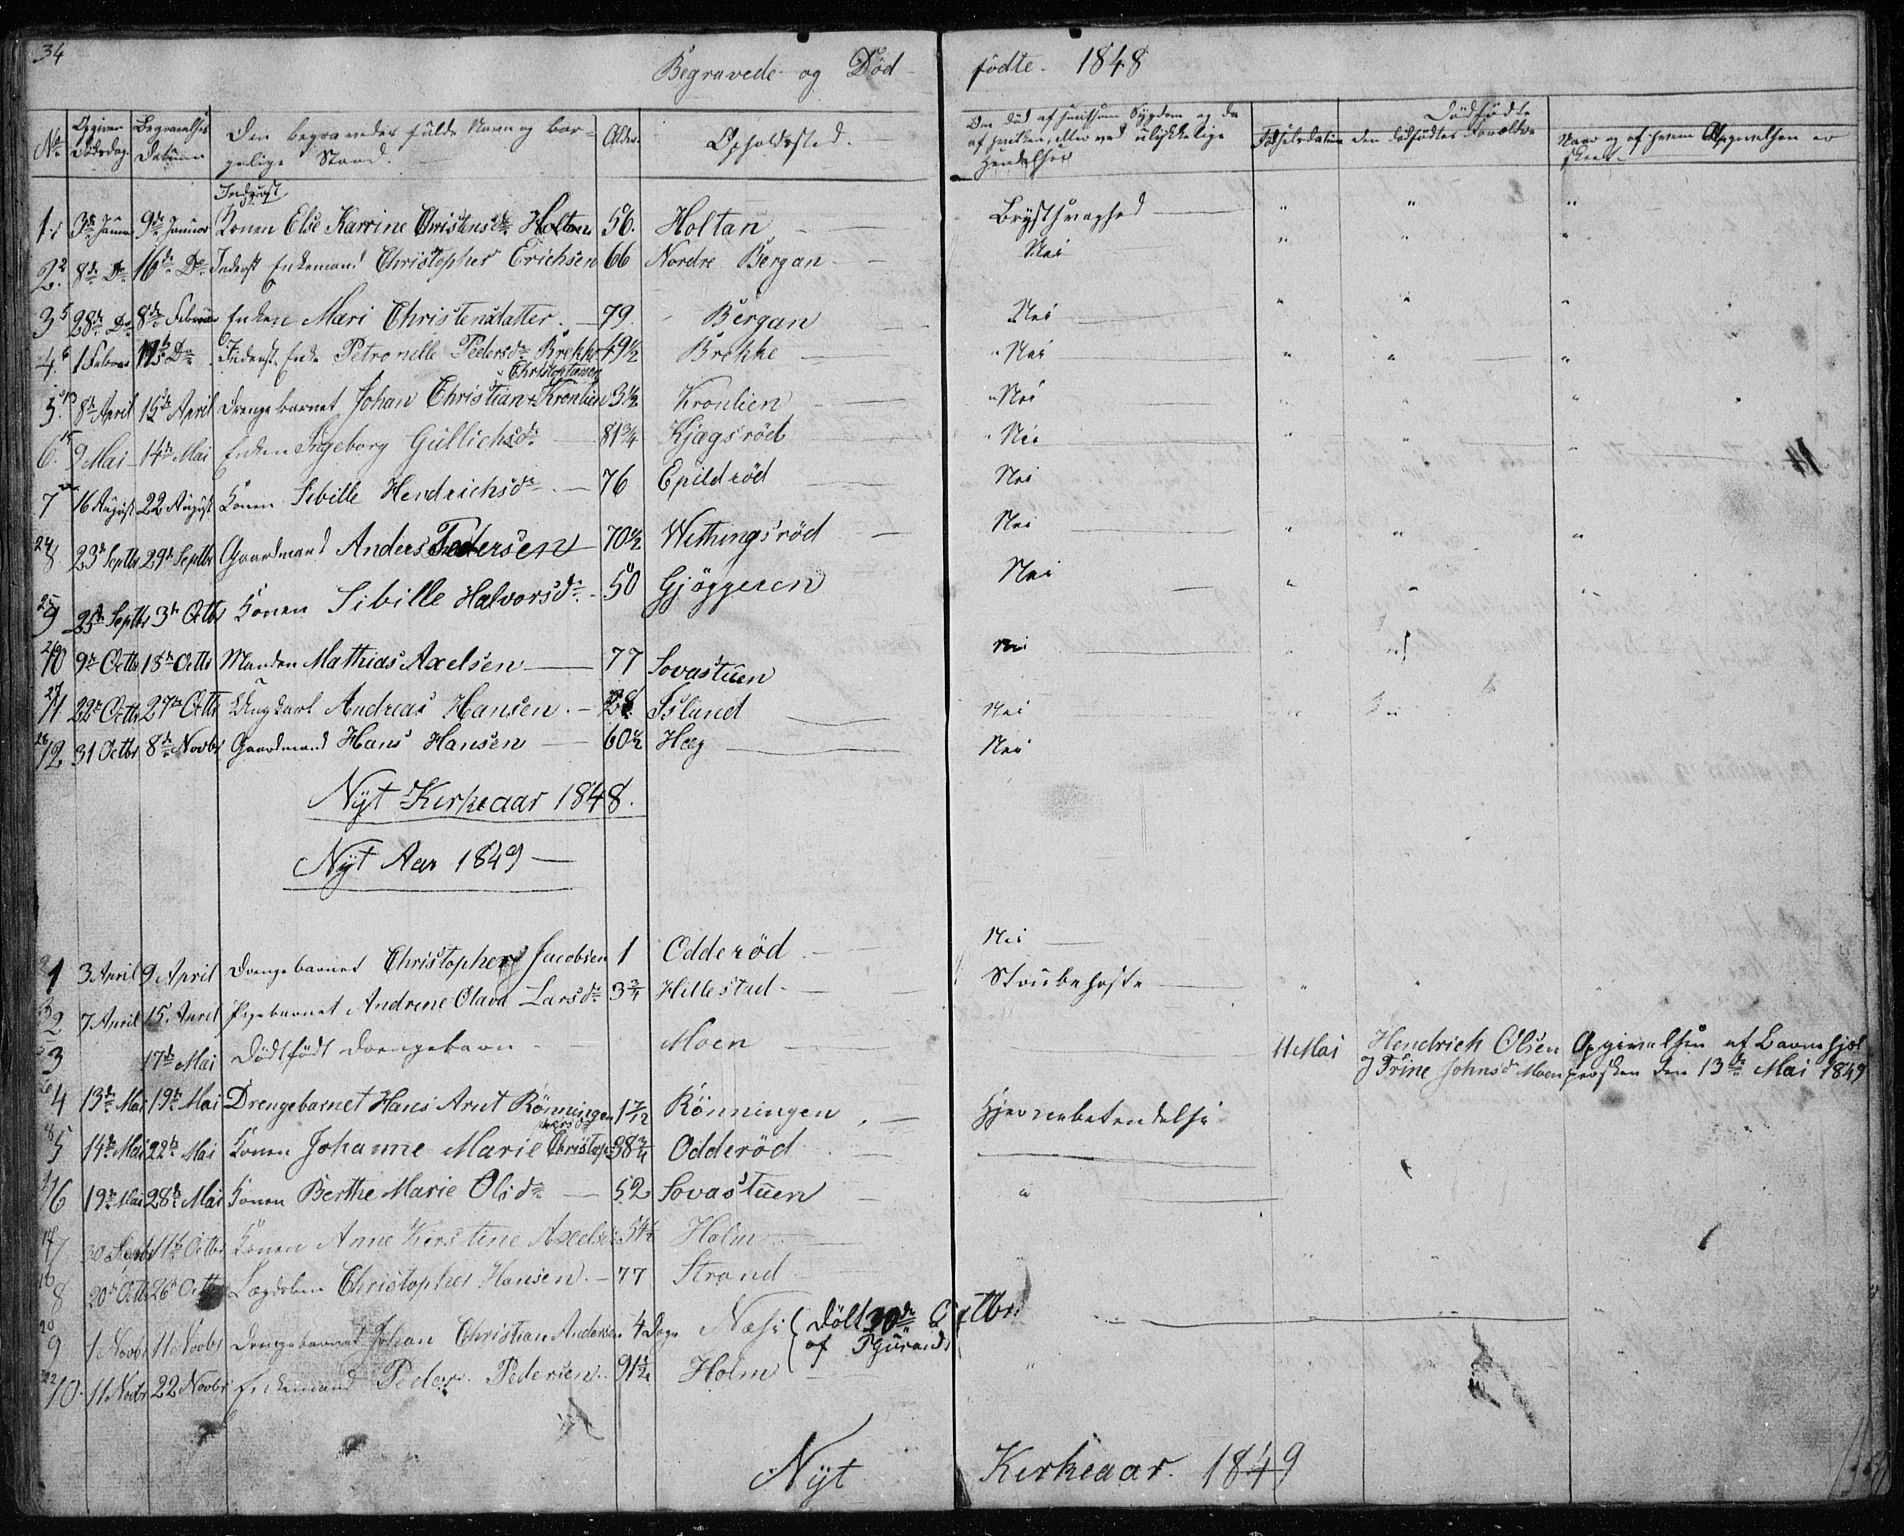 34
Begravede og Død-
fødte. 1848
No. Opgiven Dødsdag. Begravelses Datum Den begravedes fulde Navn og borgelige Stand. Alder. Opholdssted. Om død af smitsom Sygdom og da af hvilken, eller ved ulykkelige Hendelser Dødfødte Fødselsdatum den dødfødtes Forældre Naar og af hvem Opgivelsen er skeet
1. 3de Januar 9de Januar Inderst Konen Else Karrine Christensdr. Holtan 56. Holtan Brystsvaghed " " "
2. 2 8de Do. 16de Do. Inderst Enkemand Christopher Erichsen 66 Nordre Bergan Nei " " "
3 5 28de Do. 8de Februar Enken Mari Christensdatter. 79. Bergan Nei " " "
4. 6 1 Februar 11te Do. Inderst. Enke Petronelle Pedersdr. Brekke 49½ Brekke Nei " " "
Christophersen
5. 13 8de April 15de April Drengebarnet Johan Christian Kronlien 3½ Kronlien Nei
6. 15 9 Mai 14de Mai Enken Ingeborg Gullichsdr. 81¾ Kjægsrød Nei
7 16 August 22 August Konen Sibille Hendrichsdr. 76 Epildrød Nei
8 24 23de Septbr 29de Septbr Gaardmand Anders Pedersen 70½ Wethingsrød Nei " " "
9 25 25de Septbr 3de Octbr Konen Sibille Halvorsdr. 50 Gjøggeren Nei
10 26 9de Octbr 15de Octbr Manden Mathias Axelsen 77 Sovastuen Nei
11 27 22de Octbr 27de Octbr Ungkarl Andreas Hansen. 28. Island Nei
12 28 31 Octbr 8de Novbr Gaardmand Hans Hansen 60½ Hæg Nei
Nyt Kirkeaar 1848.
Nyt Aar 1849
1 3 April 9 April Drengebarnet Christopher Jacobsen 1 Odderød Nei
2 7 April 15. April Pigebarnet Andrine Olava Larsdr. 3¾ Hillestad Strubehoste " "
3 17de Mai Dødfødt Drengebarn Moen 11 Mai Hendrich Olsen Opgivelsen af Barnefader
J Trine Johnsdr Moen den 13de Mai 1849
4 13de Mai 19de Mai Drengebarnet Hans Arnt Rønningen 1 7/12 Rønningen Hjernebetendelse
hersdr.
5 8 14de Mai 22de Mai Konen Johanne Marie Christop- 38¾ Odderød
6 19de Mai 28de Mai Konen Berthe Marie Olsdr. 52 Sovastuen "
7 30 Septbr 11te Octbr Konen Anne Kirstine Axelsdr. 54½ Holm
8 16 20de Octbr 26de Octbr Lægdslem Christopher Hansen. 77 Strand "
9 20 1 Novbr 11 Novbr Drengebarnet Johan Christian Andersen 4 Dage Næs (døbt 30de Octbr.
af Thurand
10 22 11 Novbr 22 Novbr Enkemand Peder Pedersen. 91½ Holm
Nyt Kirkeaar. 1849